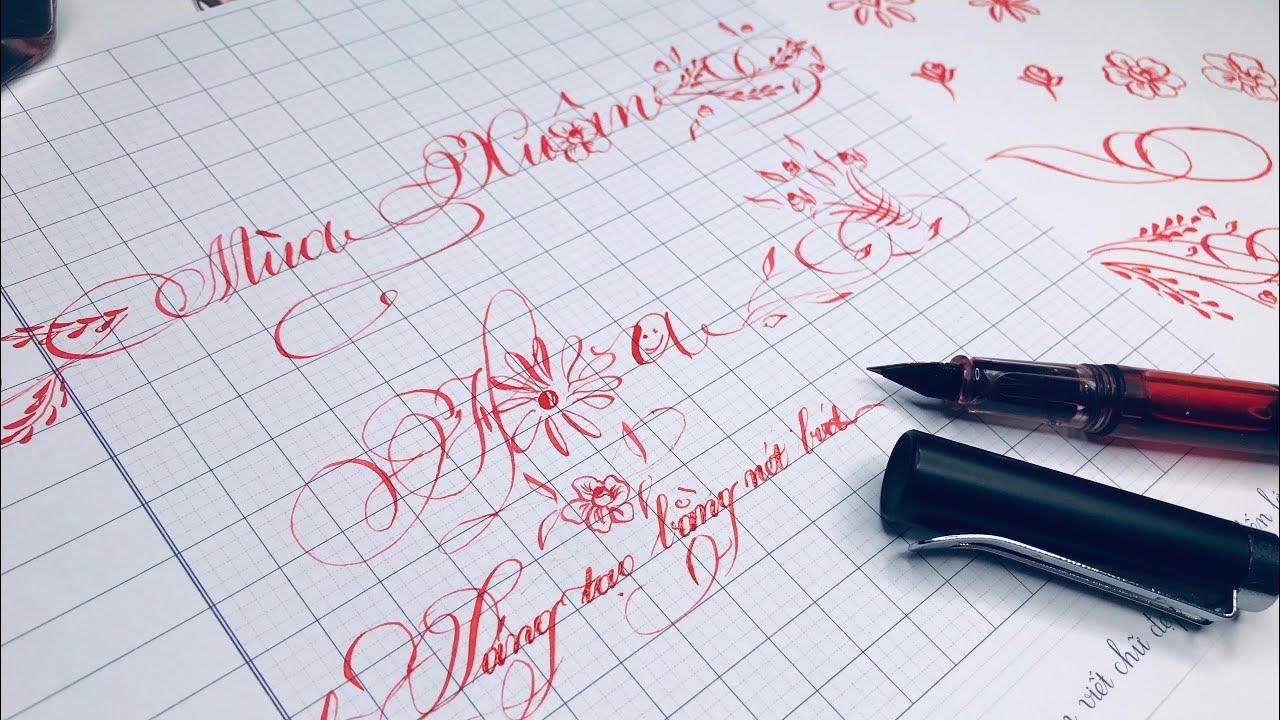 Mùa Xuân
Hoa
Sáng tạo bằng nét bút
viết chữ đẹp